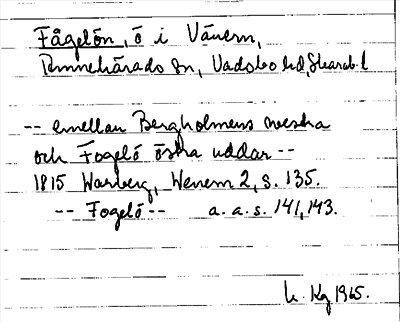 Fågelön, ö i Vänern,
Ransnehärads sn, Vadsbo hd, Skarab. l
-- emellan Bergholmens westra
och Fogelö östra uddar --
1815 Warberg, Wenern 2, s. 135.
-- Fogelö -- a. a. s. 141, 143.
Kg 1965.